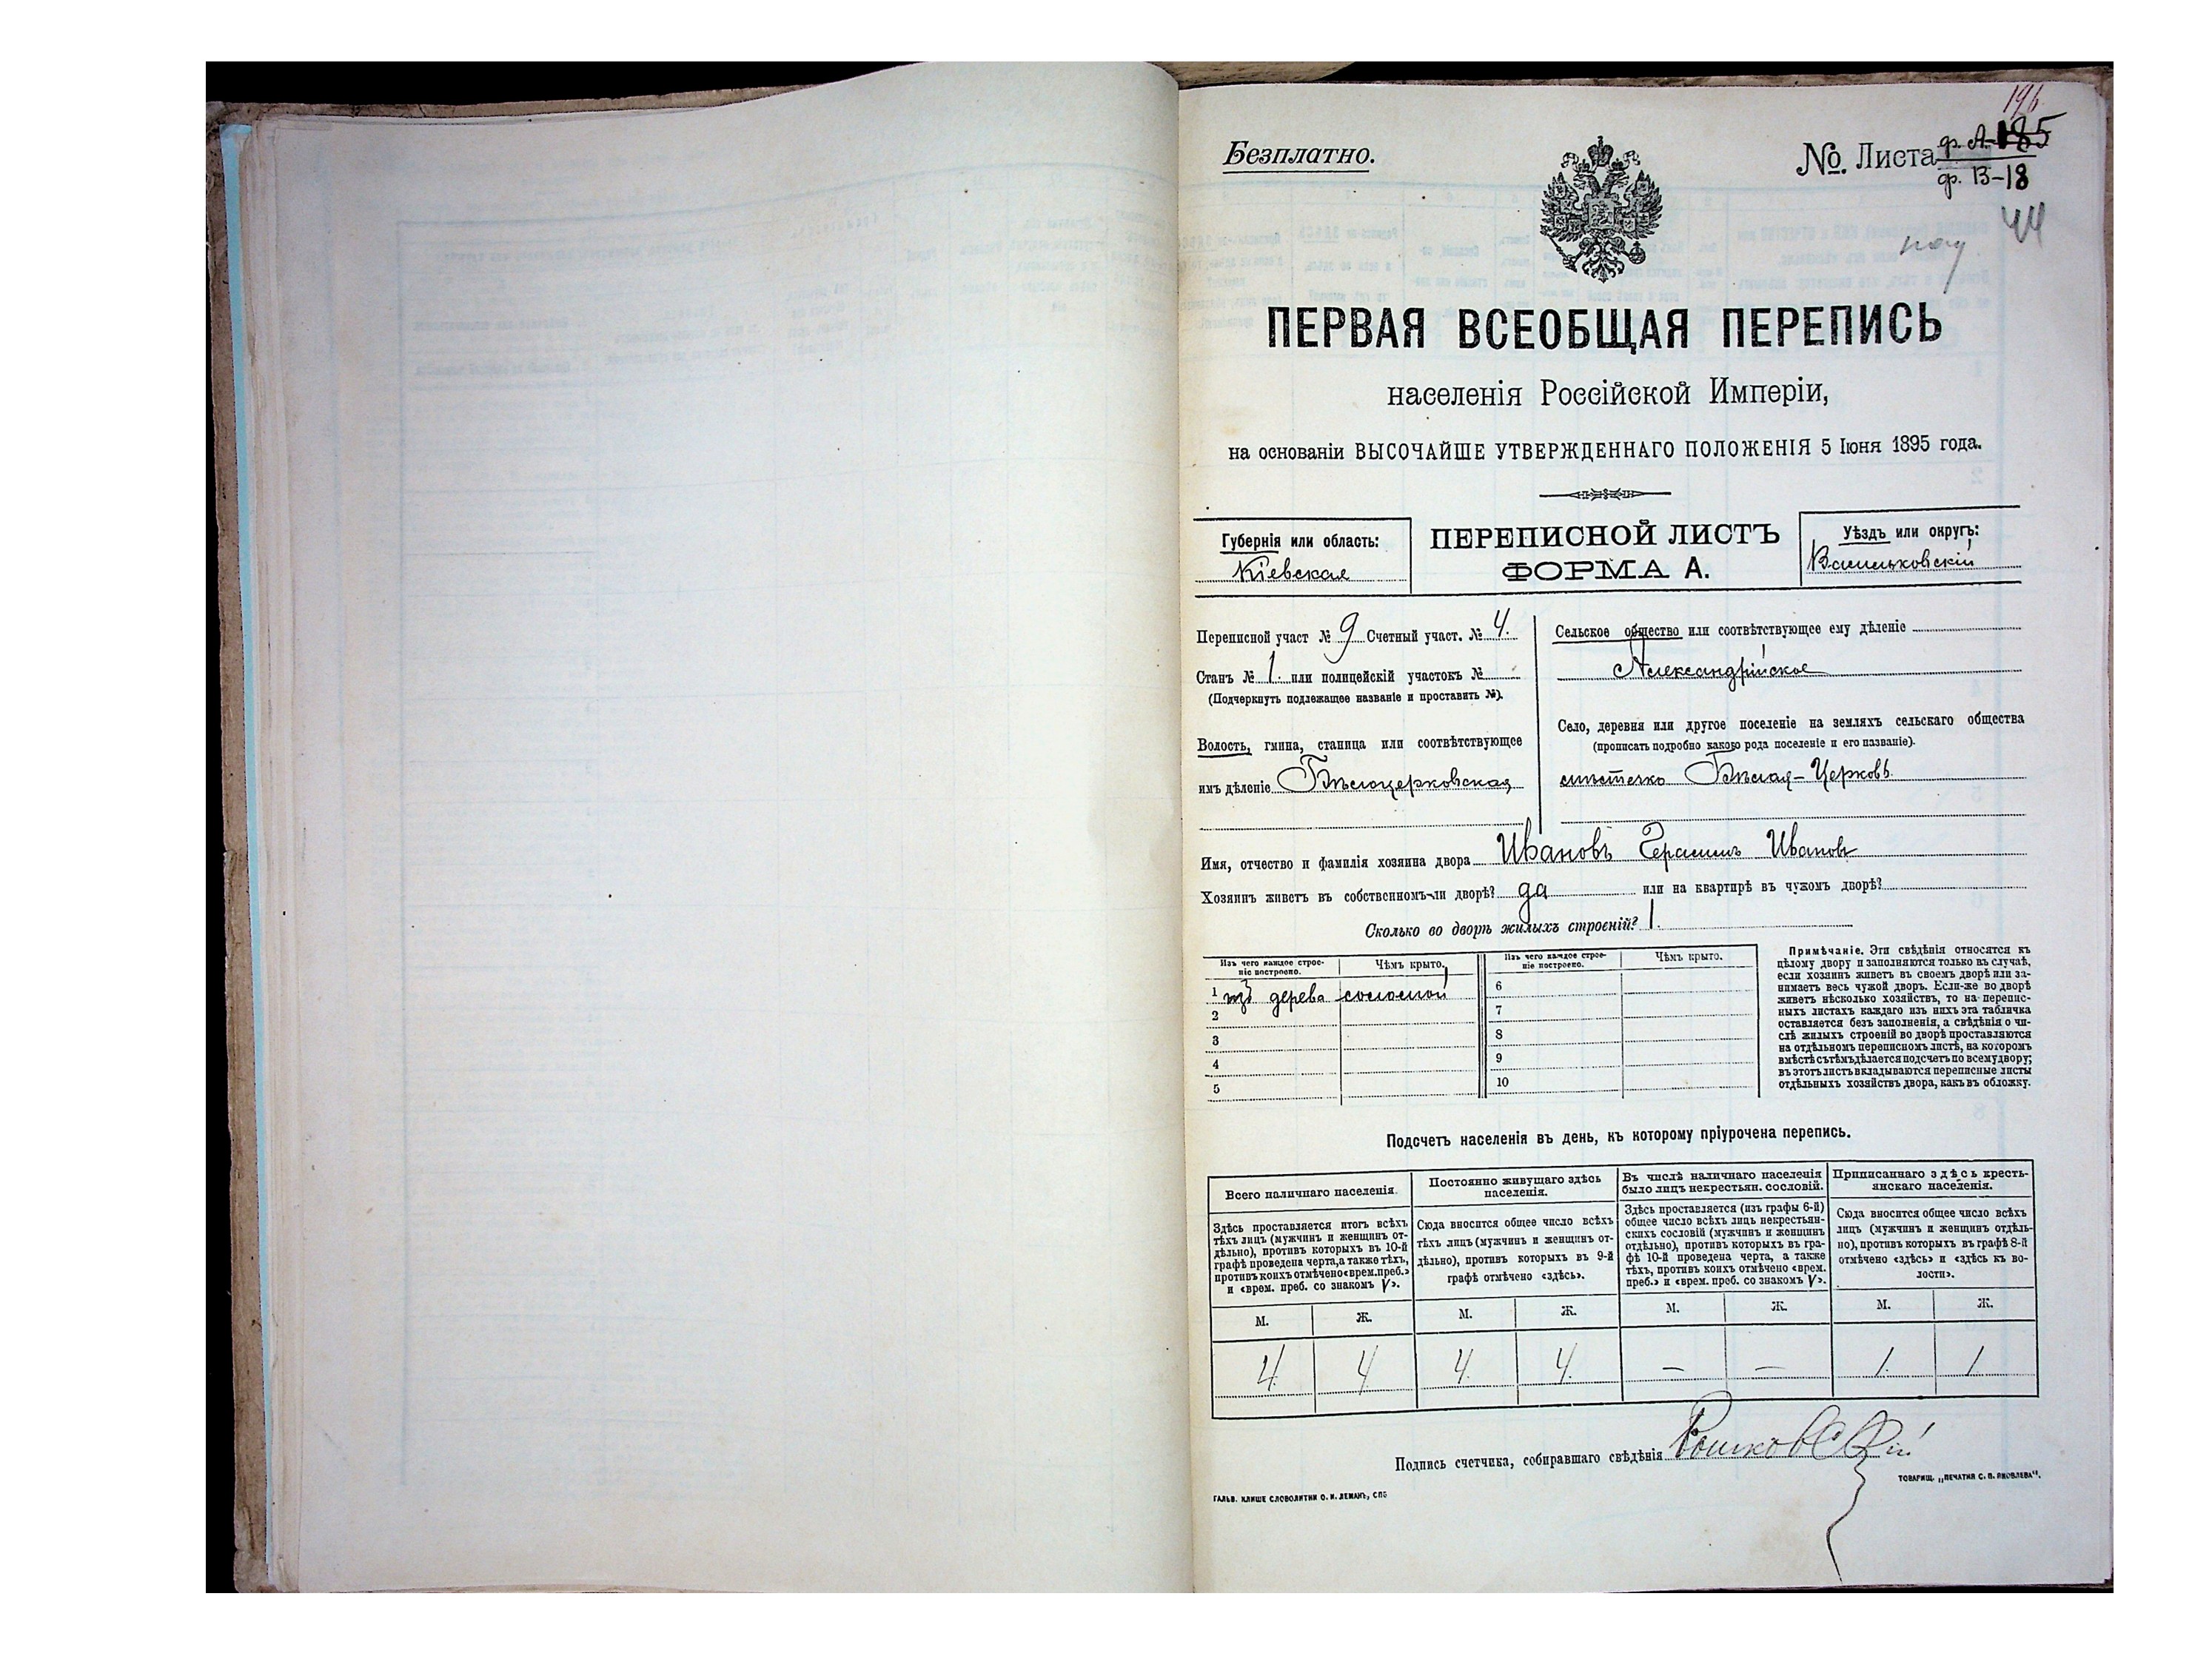 196
Безплатно.
№ Листа ф. А-185
ф. В-18
44
ПЕРВАЯ ВСЕОБЩАЯ ПЕРЕПИСЬ
населенія Россійской Имперіи,
на основаніи ВЫСОЧАЙШЕ УТВЕРЖДЕННАГО ПОЛОЖЕНІЯ 5 Іюня 1895 года.
Губернія или область:
Кіевская
ПЕРЕПИСНОЙ ЛИСТЪ
ФОРМА А.
Уѣздъ или округъ:
Васильковскій
Переписной участ № 9 Счетный участ. № 4.
Станъ № 1. или полицейскій участокъ №
(Подчеркнуть подлежащее названіе и проставить №).
Волость, гмина, станица или соотвѣтствующее
имъ дѣленіе Бѣлоцерковская
Сельское общество или соотвѣтствующее ему дѣленіе
Александрійское
Село, деревня или другое поселеніе на земляхъ сельскаго общества
(прописать подробно какого рода поселеніе и его названіе).
мѣстечко Бѣлая-Церковь.
Имя, отчество и фамилія хозяина двора Ивановъ Герасимъ Ивановъ
Хозяинъ живетъ въ собственномъ-ли дворѣ? да или на квартирѣ въ чужомъ дворѣ?
Сколько во дворѣ жилыхъ строеній? 1.
Изъ чего каждое строе-
ніе построено.
Чѣмъ крыто.
1 изъ дерева соломой
2
3
4
5
Изъ чего каждое строе-
ніе построено.
Чѣмъ крыто.
6
7
8
9
10
Примѣчаніе. Эти свѣдѣнія относятся къ
цѣлому двору и заполняются только въ случаѣ,
если хозяинъ живетъ въ своемъ дворѣ или за-
нимаетъ весь чужой дворъ. Если-же во дворѣ
живетъ нѣсколько хозяйствъ, то на перепис-
ныхъ листахъ каждаго изъ нихъ эта табличка
оставляется безъ заполненія, а свѣдѣнія о чи-
слѣ жилыхъ строеній во дворѣ проставляются
на отдѣльномъ переписномъ листѣ, на которомъ
вмѣстѣ съ тѣмъ дѣлается подсчетъ по всему двору;
въ этотъ листъ вкладываются переписные листы
отдѣльныхъ хозяйствъ двора, какъ въ обложку.
Подсчетъ населенія въ день, къ которому пріурочена перепись.
Всего наличнаго населенія.
Здѣсь проставляется итогъ всѣхъ
тѣхъ лицъ (мужчинъ и женщинъ от-
дѣльно), противъ которыхъ въ 10-й
графѣ проведена черта, а также тѣхъ,
противъ коихъ отмѣчено «врем. преб.»
и «врем. преб. со знакомъ V».
М. Ж.
4. 4
Постоянно живущаго здѣсь
населенія.
Сюда вносится общее число всѣхъ
тѣхъ лицъ (мужчинъ и женщинъ от-
дѣльно), противъ которыхъ въ 9-й
графѣ отмѣчено «здѣсь».
М. Ж.
4. 4.
Въ числѣ наличнаго населенія
было лицъ некрестьян. сословій.
Здѣсь проставляется (изъ графы 6-й)
общее число всѣхъ лицъ некрестьян-
скихъ сословій (мужчинъ и женщинъ
отдѣльно), противъ которыхъ въ гра-
фѣ 10-й проведена черта, а также
тѣхъ, противъ коихъ отмѣчено «врем.
преб.» и «врем. преб. со знакомъ V».
М. Ж.
— —
Приписаннаго здѣсь кресть-
янскаго населенія.
Сюда вносится общее число всѣхъ
лицъ (мужчинъ и женщинъ отдѣль-
но), противъ которыхъ въ графѣ 8-й
отмѣчено «здѣсь» и «здѣсь къ во-
лости».
М. Ж.
1. 1.
Подпись счетчика, собиравшаго свѣдѣнія
ТОВАРИЩ. „ПЕЧАТНЯ С. П. ЯКОВЛЕВА".
ГАЛЬВ. КЛИШЕ СЛОВОЛИТНИ О. И. ЛЕМАНЪ, СПБ